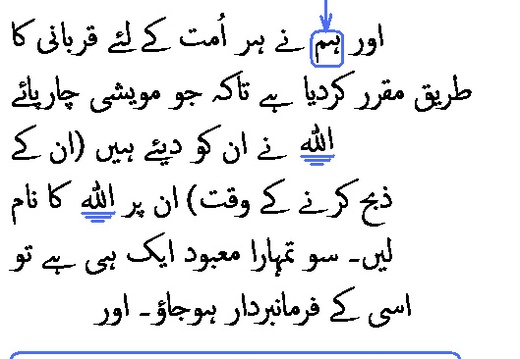 اور ہم نے ہر اُمت کے لئے قربانی کا
طریق مقرر کردیا ہے تاکہ جو مویشی چارپائے
اللہ نے ان کو دیئے ہیں (ان کے
ذبح کرنے کے وقت) ان پر اللہ کا نام
لیں۔ سو تمہارا معبود ایک ہی ہے تو
اسی کے فرمانبردار ہوجاؤ۔ اور